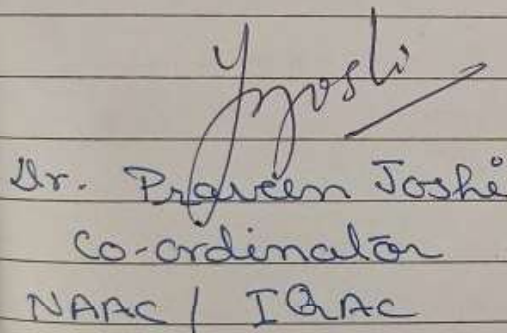 Joshi
Dr. Praveen Joshi
Co-ordinator
NAAC / IQAC